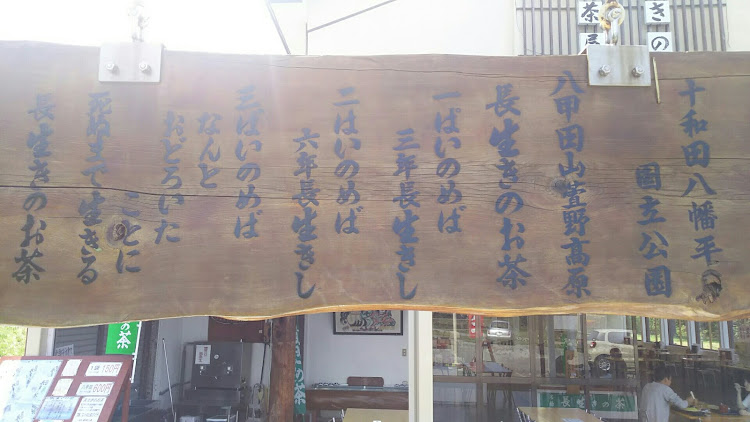 十和田八幡平
国立公園
八甲田山萱野高原
長生きのお茶
一ぱいのめば
三年長生きし
二はいのめば
六年長生きし
三ばいのめば
なんと
おどろいた
ことに
死ぬまで生きる
長生きのお茶
きの
茶屋
の茶
きの茶
長生きの茶
150円
600円